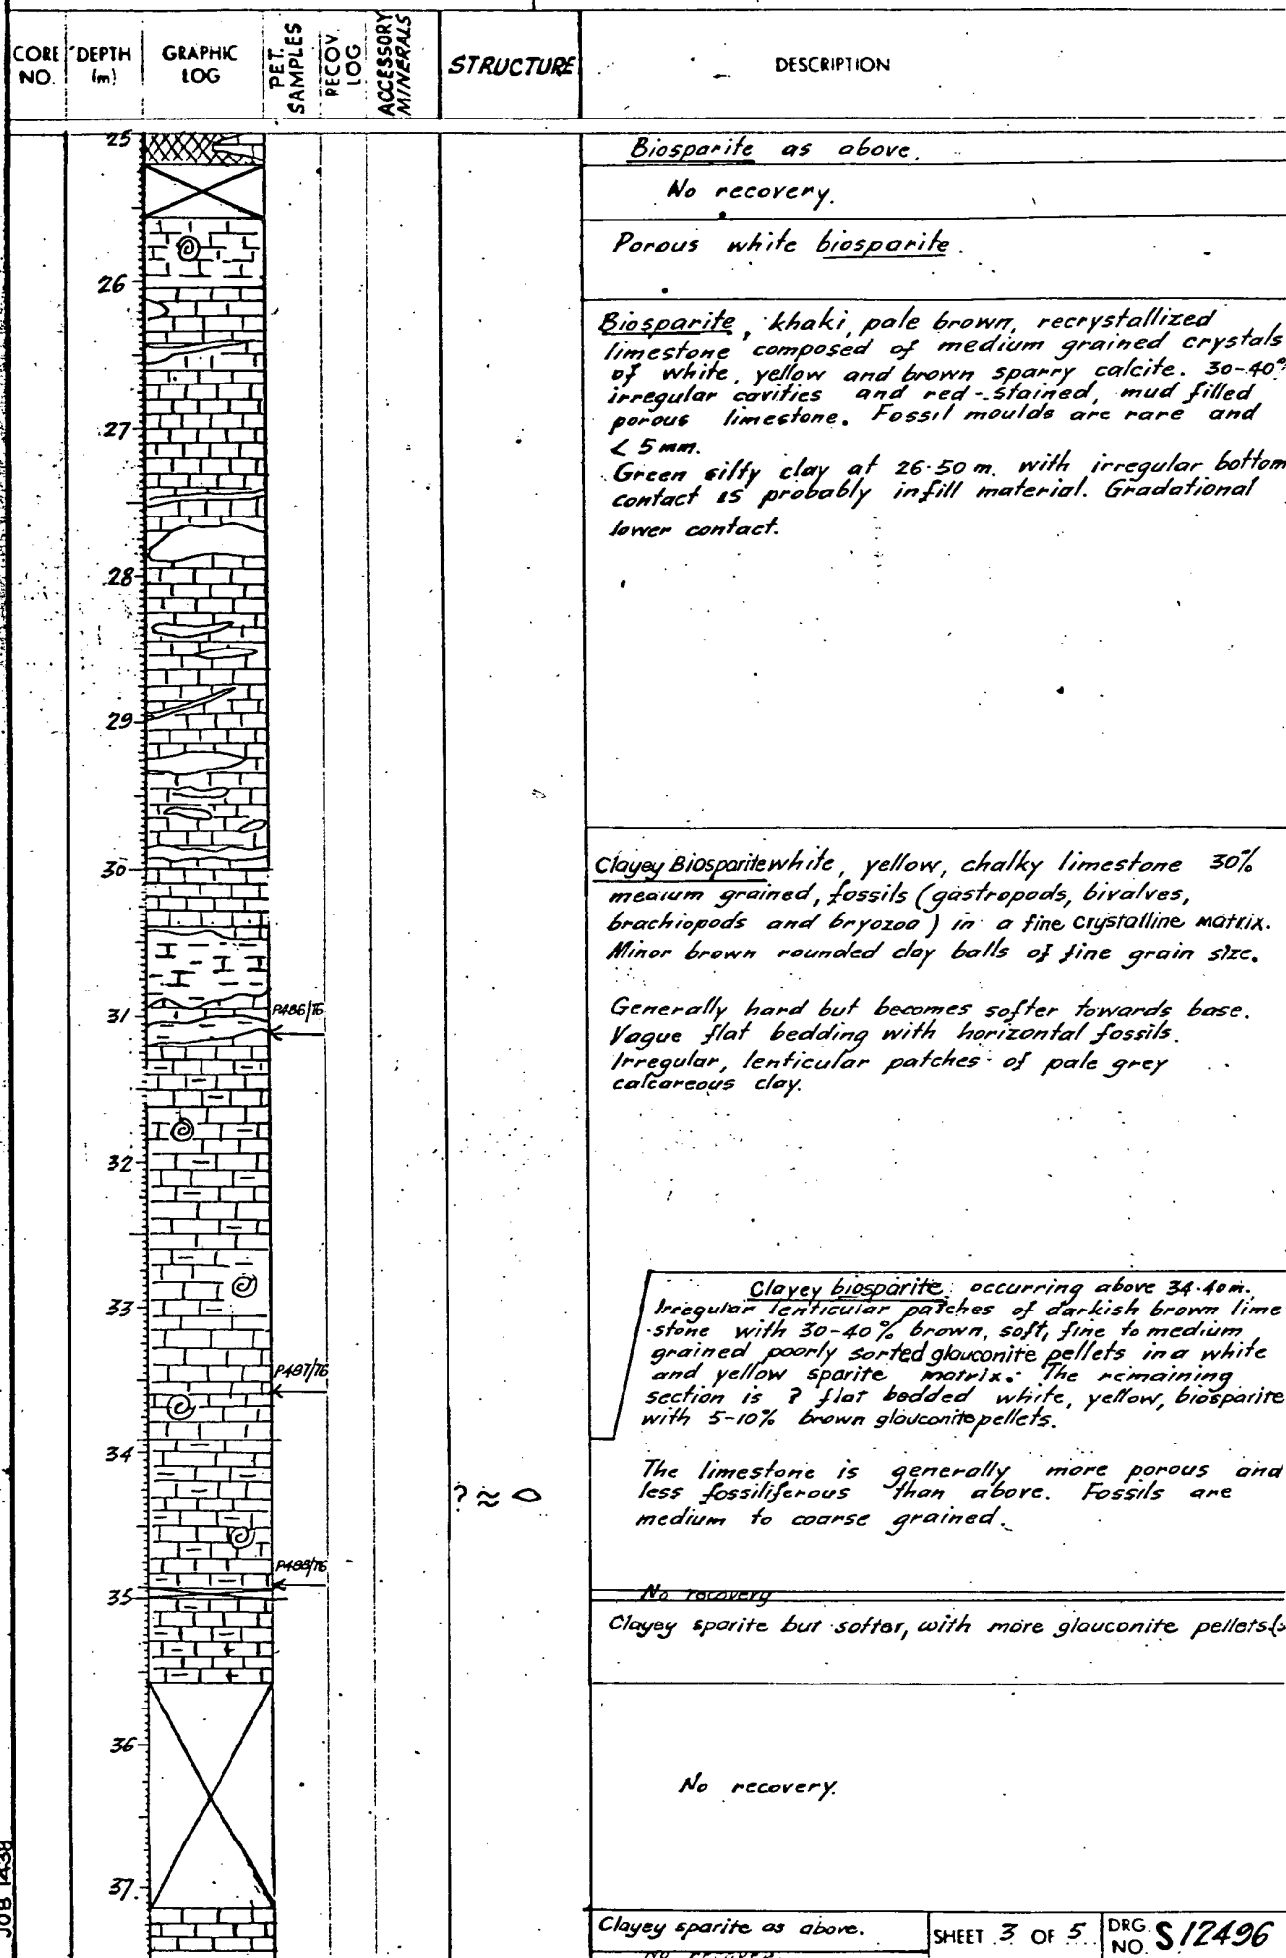 CORE NO.
DEPTH (m)
GRAPHIC LOG
PET. SAMPLES
RECOV. LOG
ACCESSORY MINERALS
STRUCTURE
DESCRIPTION
25
Biosparite as above.
No recovery.
Porous white biosparite.
26
Biosparite, khaki, pale brown, recrystallized
limestone composed of medium grained crystals
of white, yellow and brown sparry calcite. 30-40%
irregular cavities and red-stained, mud filled
porous limestone. Fossil moulds are rare and
< 5 mm.
Green silty clay at 26·50 m. with irregular bottom
contact is probably infill material. Gradational
lower contact.
27
28
29
30
Clayey Biosparite white, yellow, chalky limestone 30%
medium grained, fossils (gastropods, bivalves,
brachiopods and bryozoa) in a fine crystalline matrix.
Minor brown rounded clay balls of fine grain size.
Generally hard but becomes softer towards base.
Vague flat bedding with horizontal fossils.
Irregular, lenticular patches of pale grey
calcareous clay.
31
P486/76
32
33
Clayey biosparite: occurring above 34·40m.
Irregular lenticular patches of darkish brown lime
-stone with 30-40% brown, soft, fine to medium
grained poorly sorted glauconite pellets in a white
and yellow sparite matrix. The remaining
section is ? flat bedded white, yellow, biosparite
with 5-10% brown glauconite pellets.
P487/76
34
The limestone is generally more porous and
less fossiliferous than above. Fossils are
medium to coarse grained.
? ≈
P488/76
35
No recovery
Clayey sparite but softer, with more glauconite pellets
36
No recovery.
37
Clayey sparite as above.
No recovery.
SHEET 3 OF 5
DRG. NO. S12496
JOB 1438